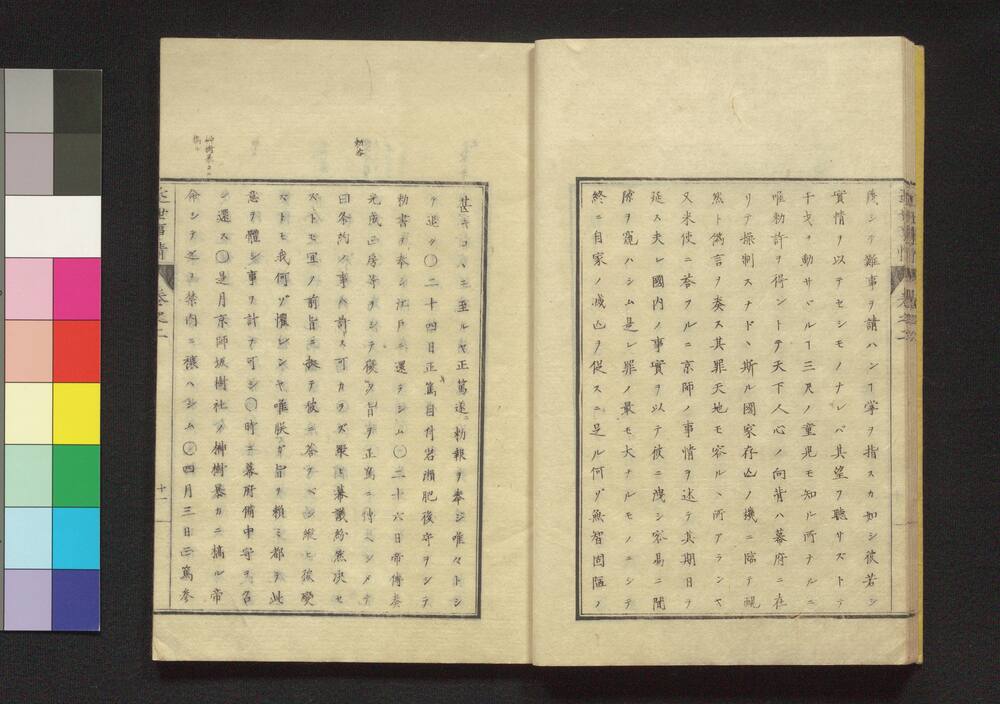 復シテ難事ヲ請ハンヿ掌ヲ指スカ如シ彼若シ
實情ヲ以テセシモノナレバ其望ヲ聴サズトテ
干戈ヲ動サヾルヿ三尺ノ童児モ知ル所ナルニ
唯勅許ヲ得ントテ天下人心ノ向背ハ幕府ニ在
リテ操制スナド、斯ル國家存亡ノ機ニ臨テ
然ト偽言ヲ奏ス其罪天地モ容ル、所アランヤ
又米使ニ答フルニ京師ノ事情ヲ述テ其期日ヲ
延ス夫レ國内ノ事實ヲ以テ彼ニ洩シ容易ニ間
隙ヲ窺ハシム是レ罪ノ最モ大ナルモノニシテ
終ニ自家ノ滅亡ヲ促スニ足ル何ゾ無智固陋ノ
近世事情 巻之二
甚キコヽニ至ルヤ正篤遂ニ勅報ヲ奉ジ唯々トシ
テ退ク〇二十四日正篤自付岩瀬肥後守ヲシテ
勅書ヲ奉シ江戸ニ還ラシム〇二十六日帝傳奏
光成正房等ヲシテ復タ旨ヲ正篤ニ傳ヘシメテ
曰条約ノ事ハ許ス可カラズ聚ヒ幕議紛然决セ
ズトモ宜ク前旨ニ拠テ彼ニ答ヲベシ縦ヒ後変
ストモ我何ゾ懼レンヤ唯朕ガ旨ヲ頼ミ都テ此
意ヲ體シ事ヲ計ル可シ〇時ニ幕府備中守ヲ召
シ還ス〇是月京師坂樹社ノ神樹暴カニ槁ル帝
命シテ之ヲ禁内ニ禳ハシム〇四月三日正篤参
勅答
近世事情 巻之二
十一